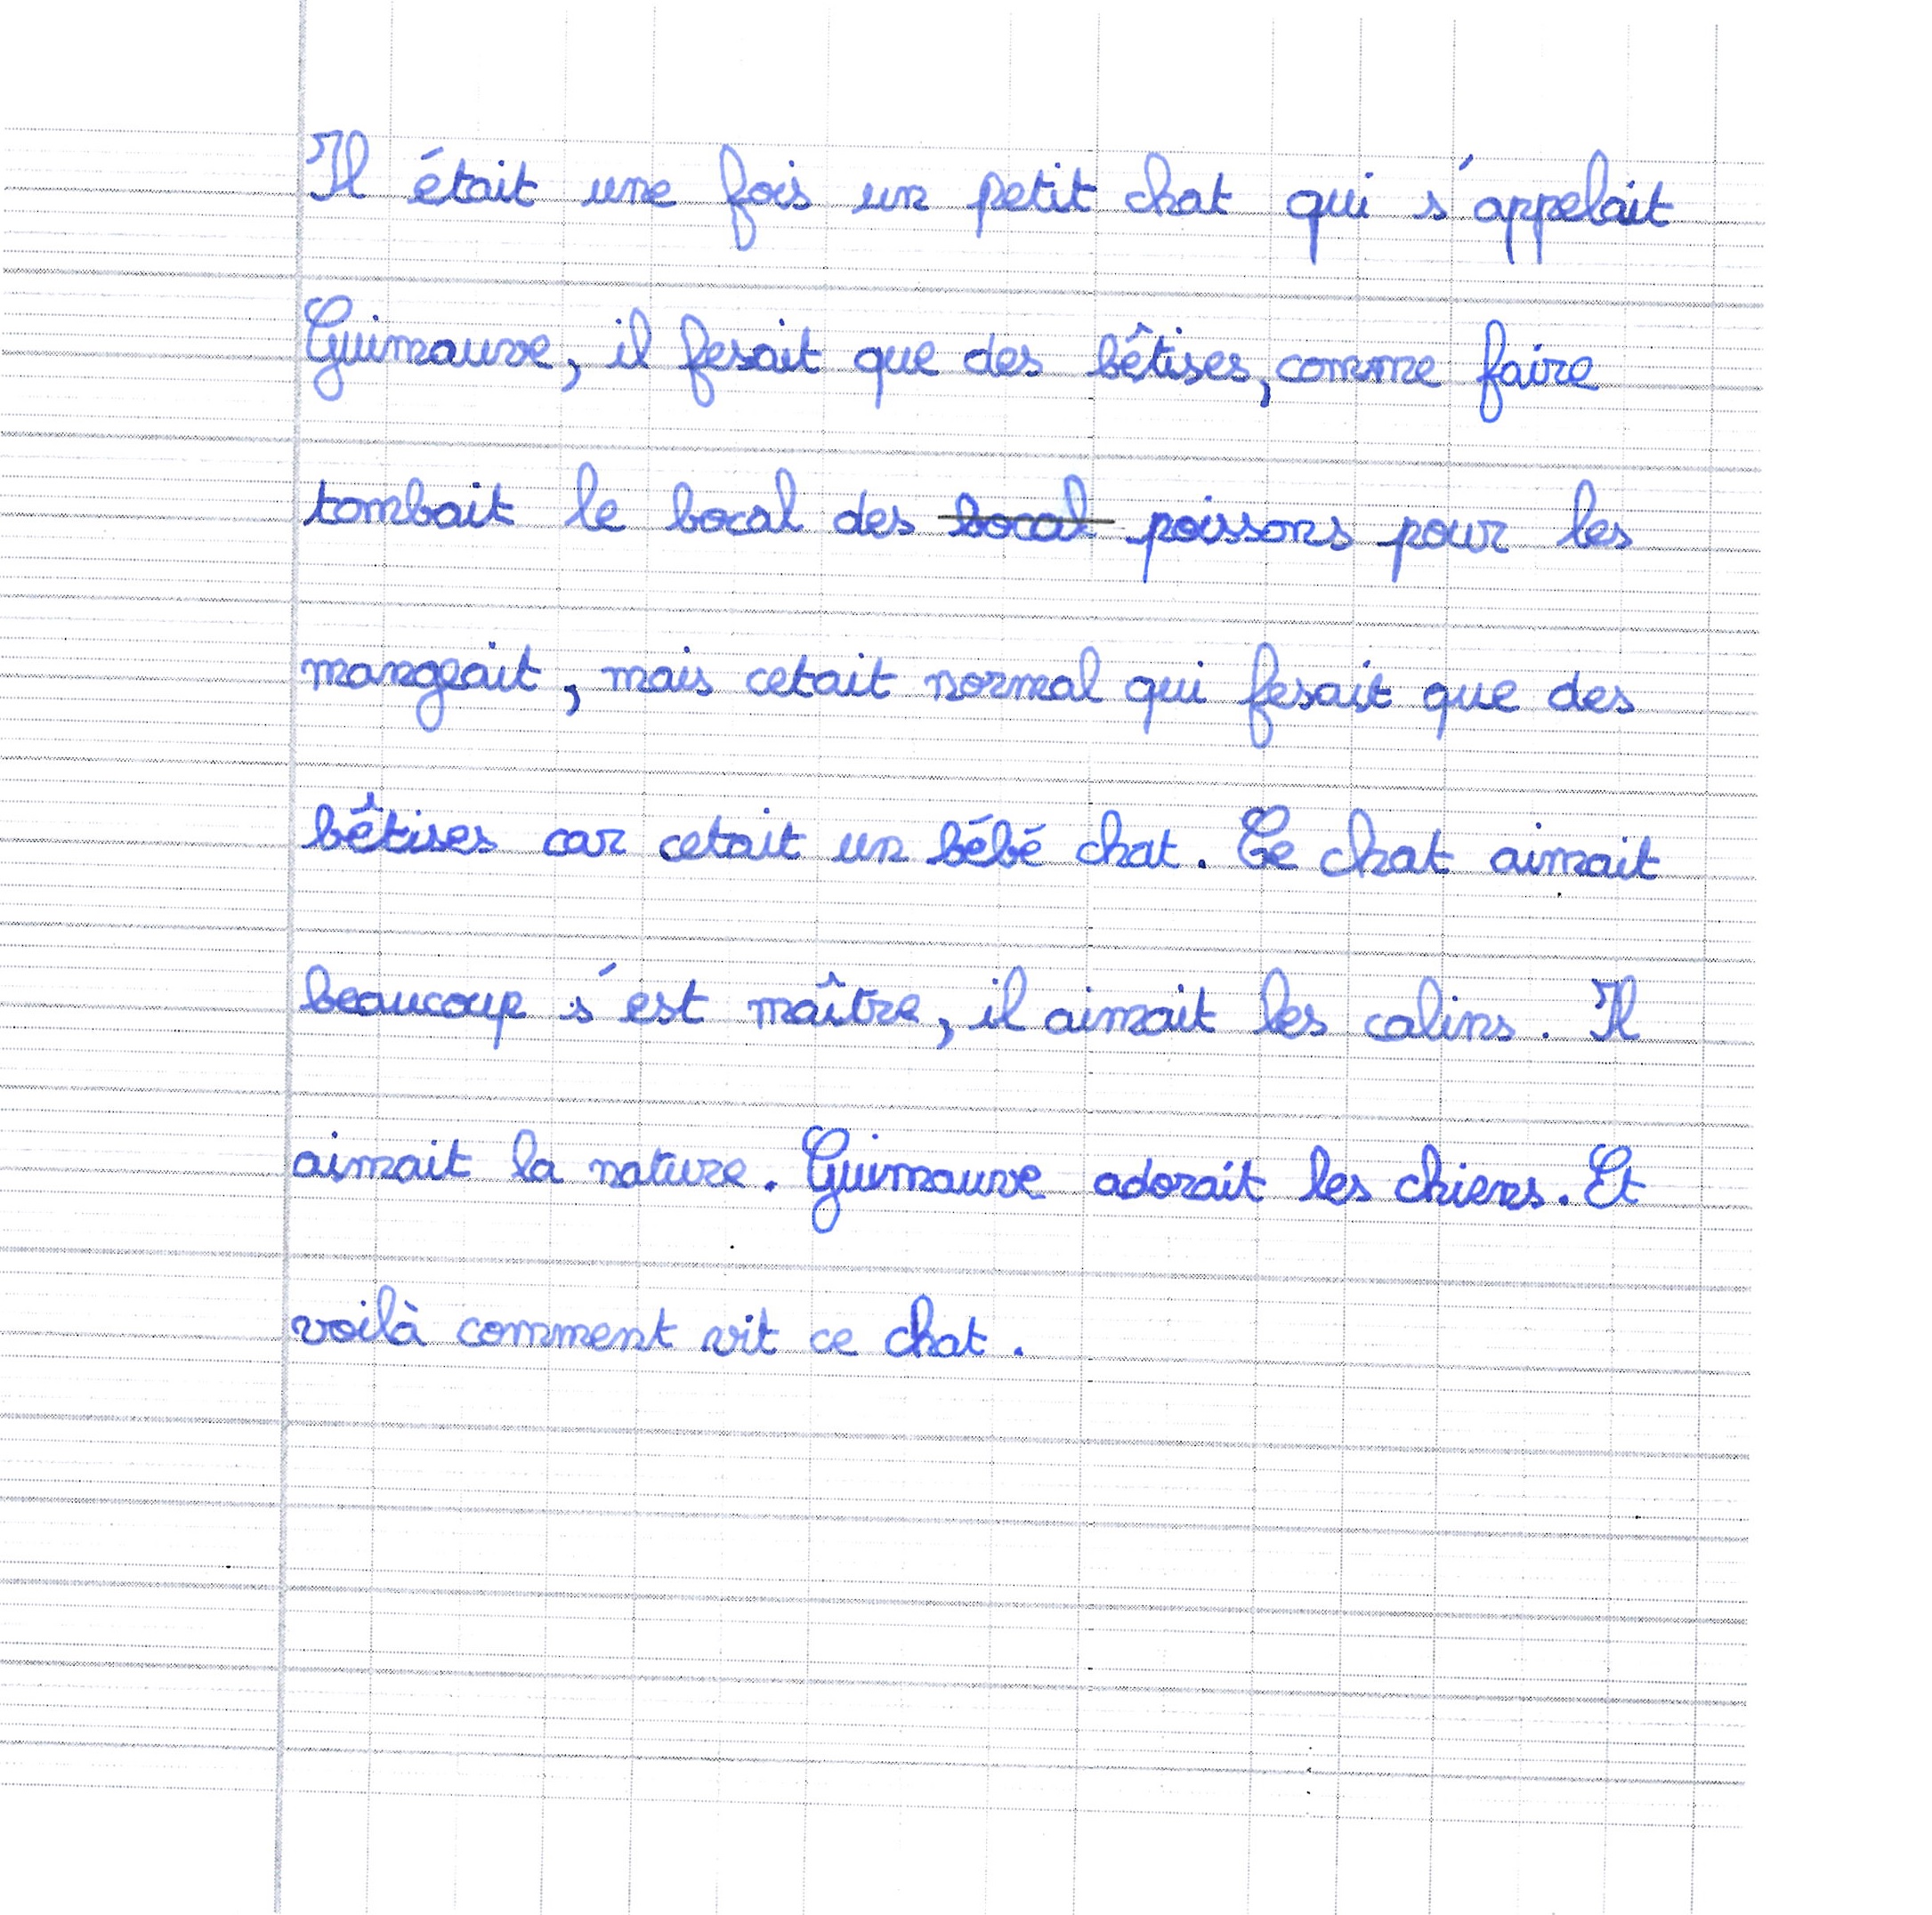 Il était une fois un petit chat qui s'appelait
Guimauve, il fesait que des bêtises, comme faire
tombait le bocal des bocal poissons pour les
mangeait, mais cetait normal qui fesait que des
bêtises car cetait un bébé chat. Ce chat aimait
beaucoup s'est maître, il aimait les calins. Il
aimait la nature. Guimauve adorait les chiens. Et
voilà comment vit ce chat.